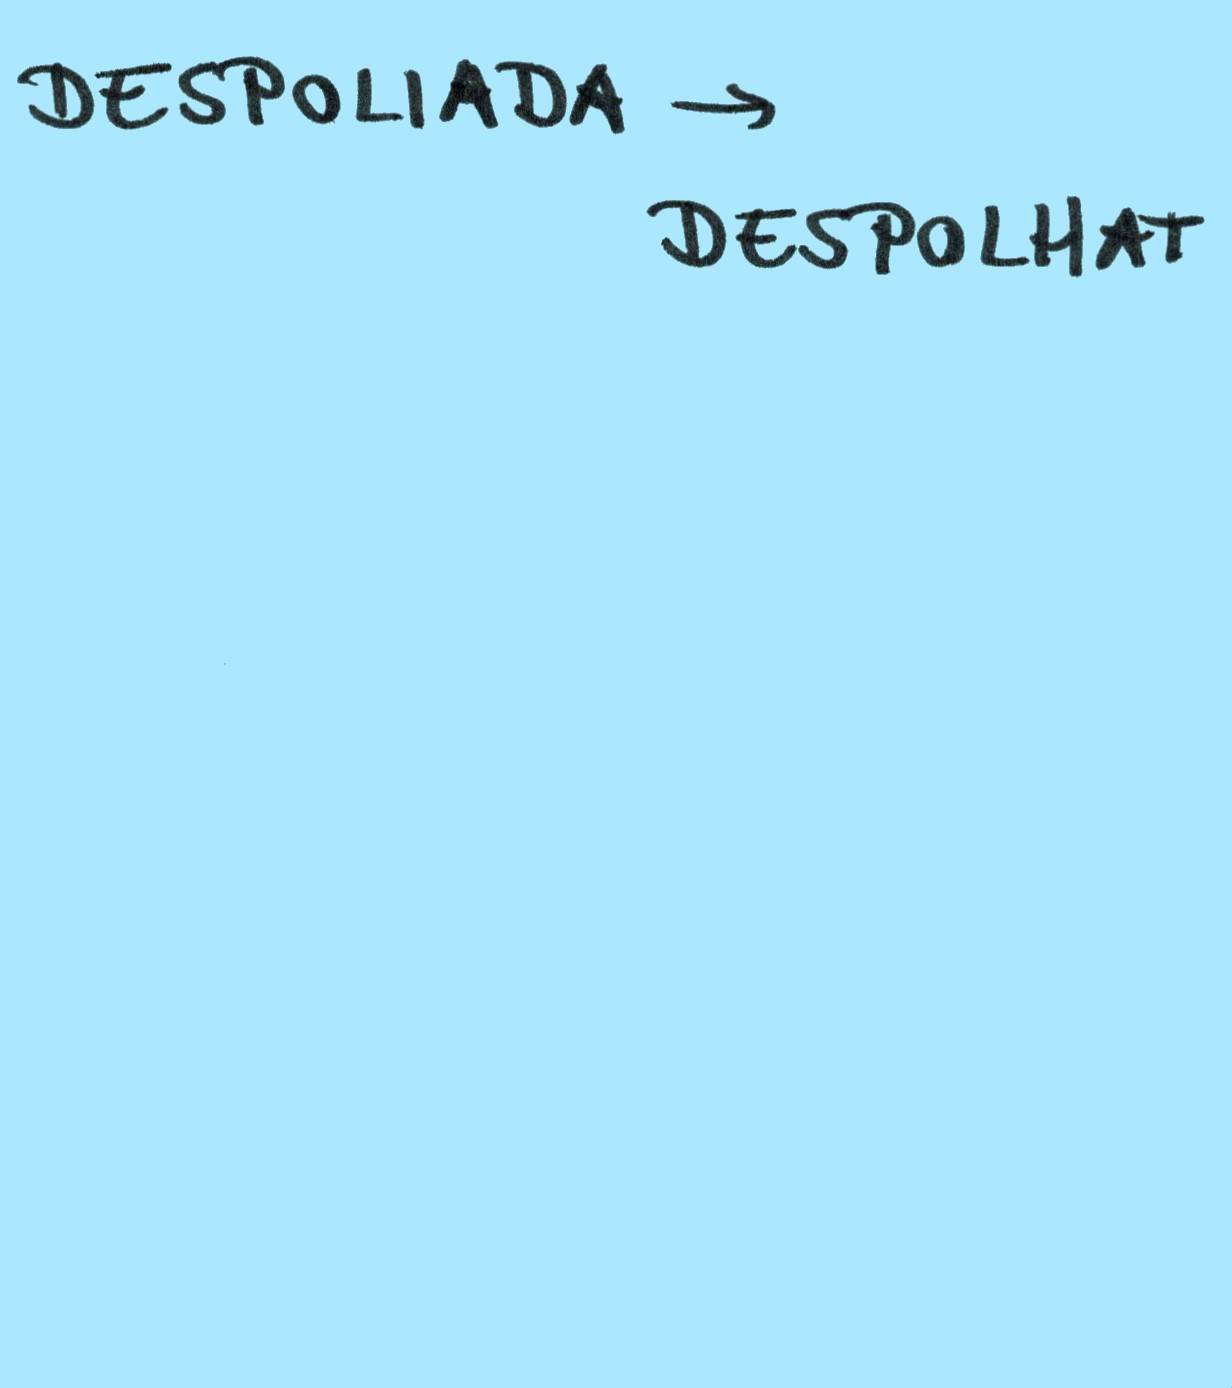 DESPOLIADA →
DESPOLHAT